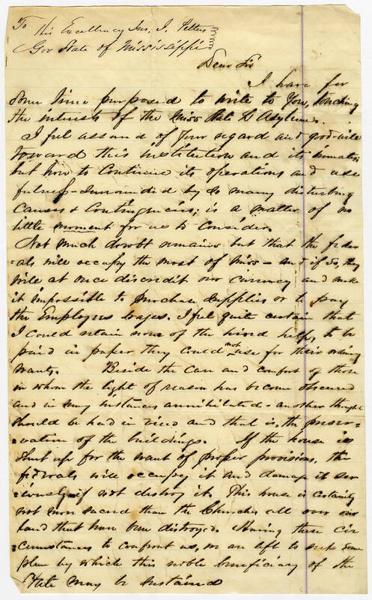 To His Excellency Jno. J. Pettus
Gov State of Mississippi
Dear Sir
I have for
some time purposed to write to You, touching
the interests of the Miss State L Asylum.
I feel assured of Your regard and good will
toward this institution and its inmates
but how to Continue its operations and use
fulness - surrounded by so many disturbing
Causes & Contingencies; is a matter of no
little moment for us to Consider.
Not much doubt remains but that the fede
rals will occupy the most of Miss - and if so, they
will at once discredit our currency and make
it impossible to purchase supplies or to pay
the Employees wages. I feel quite certain that
I could retain none of the hired help, to be
paid in paper they could not use for their ordinary
wants. Beside the Care and comfort of those
in whom the light of reason has become obscured
and in many instances annihilated - another thought
should be had in view and that is, the preser
vation of the buildings. If the house is
shut up for the want of proper provisions, the
federals will occupy it and damage it ser
iously if not destroy it. This house is certainly
not more sacred than the Churches all over our
land that have been destroyed. Having these cir
cumstances to confront us, we are left to seek some
plan by which this noble beneficiary of the
State may be sustained